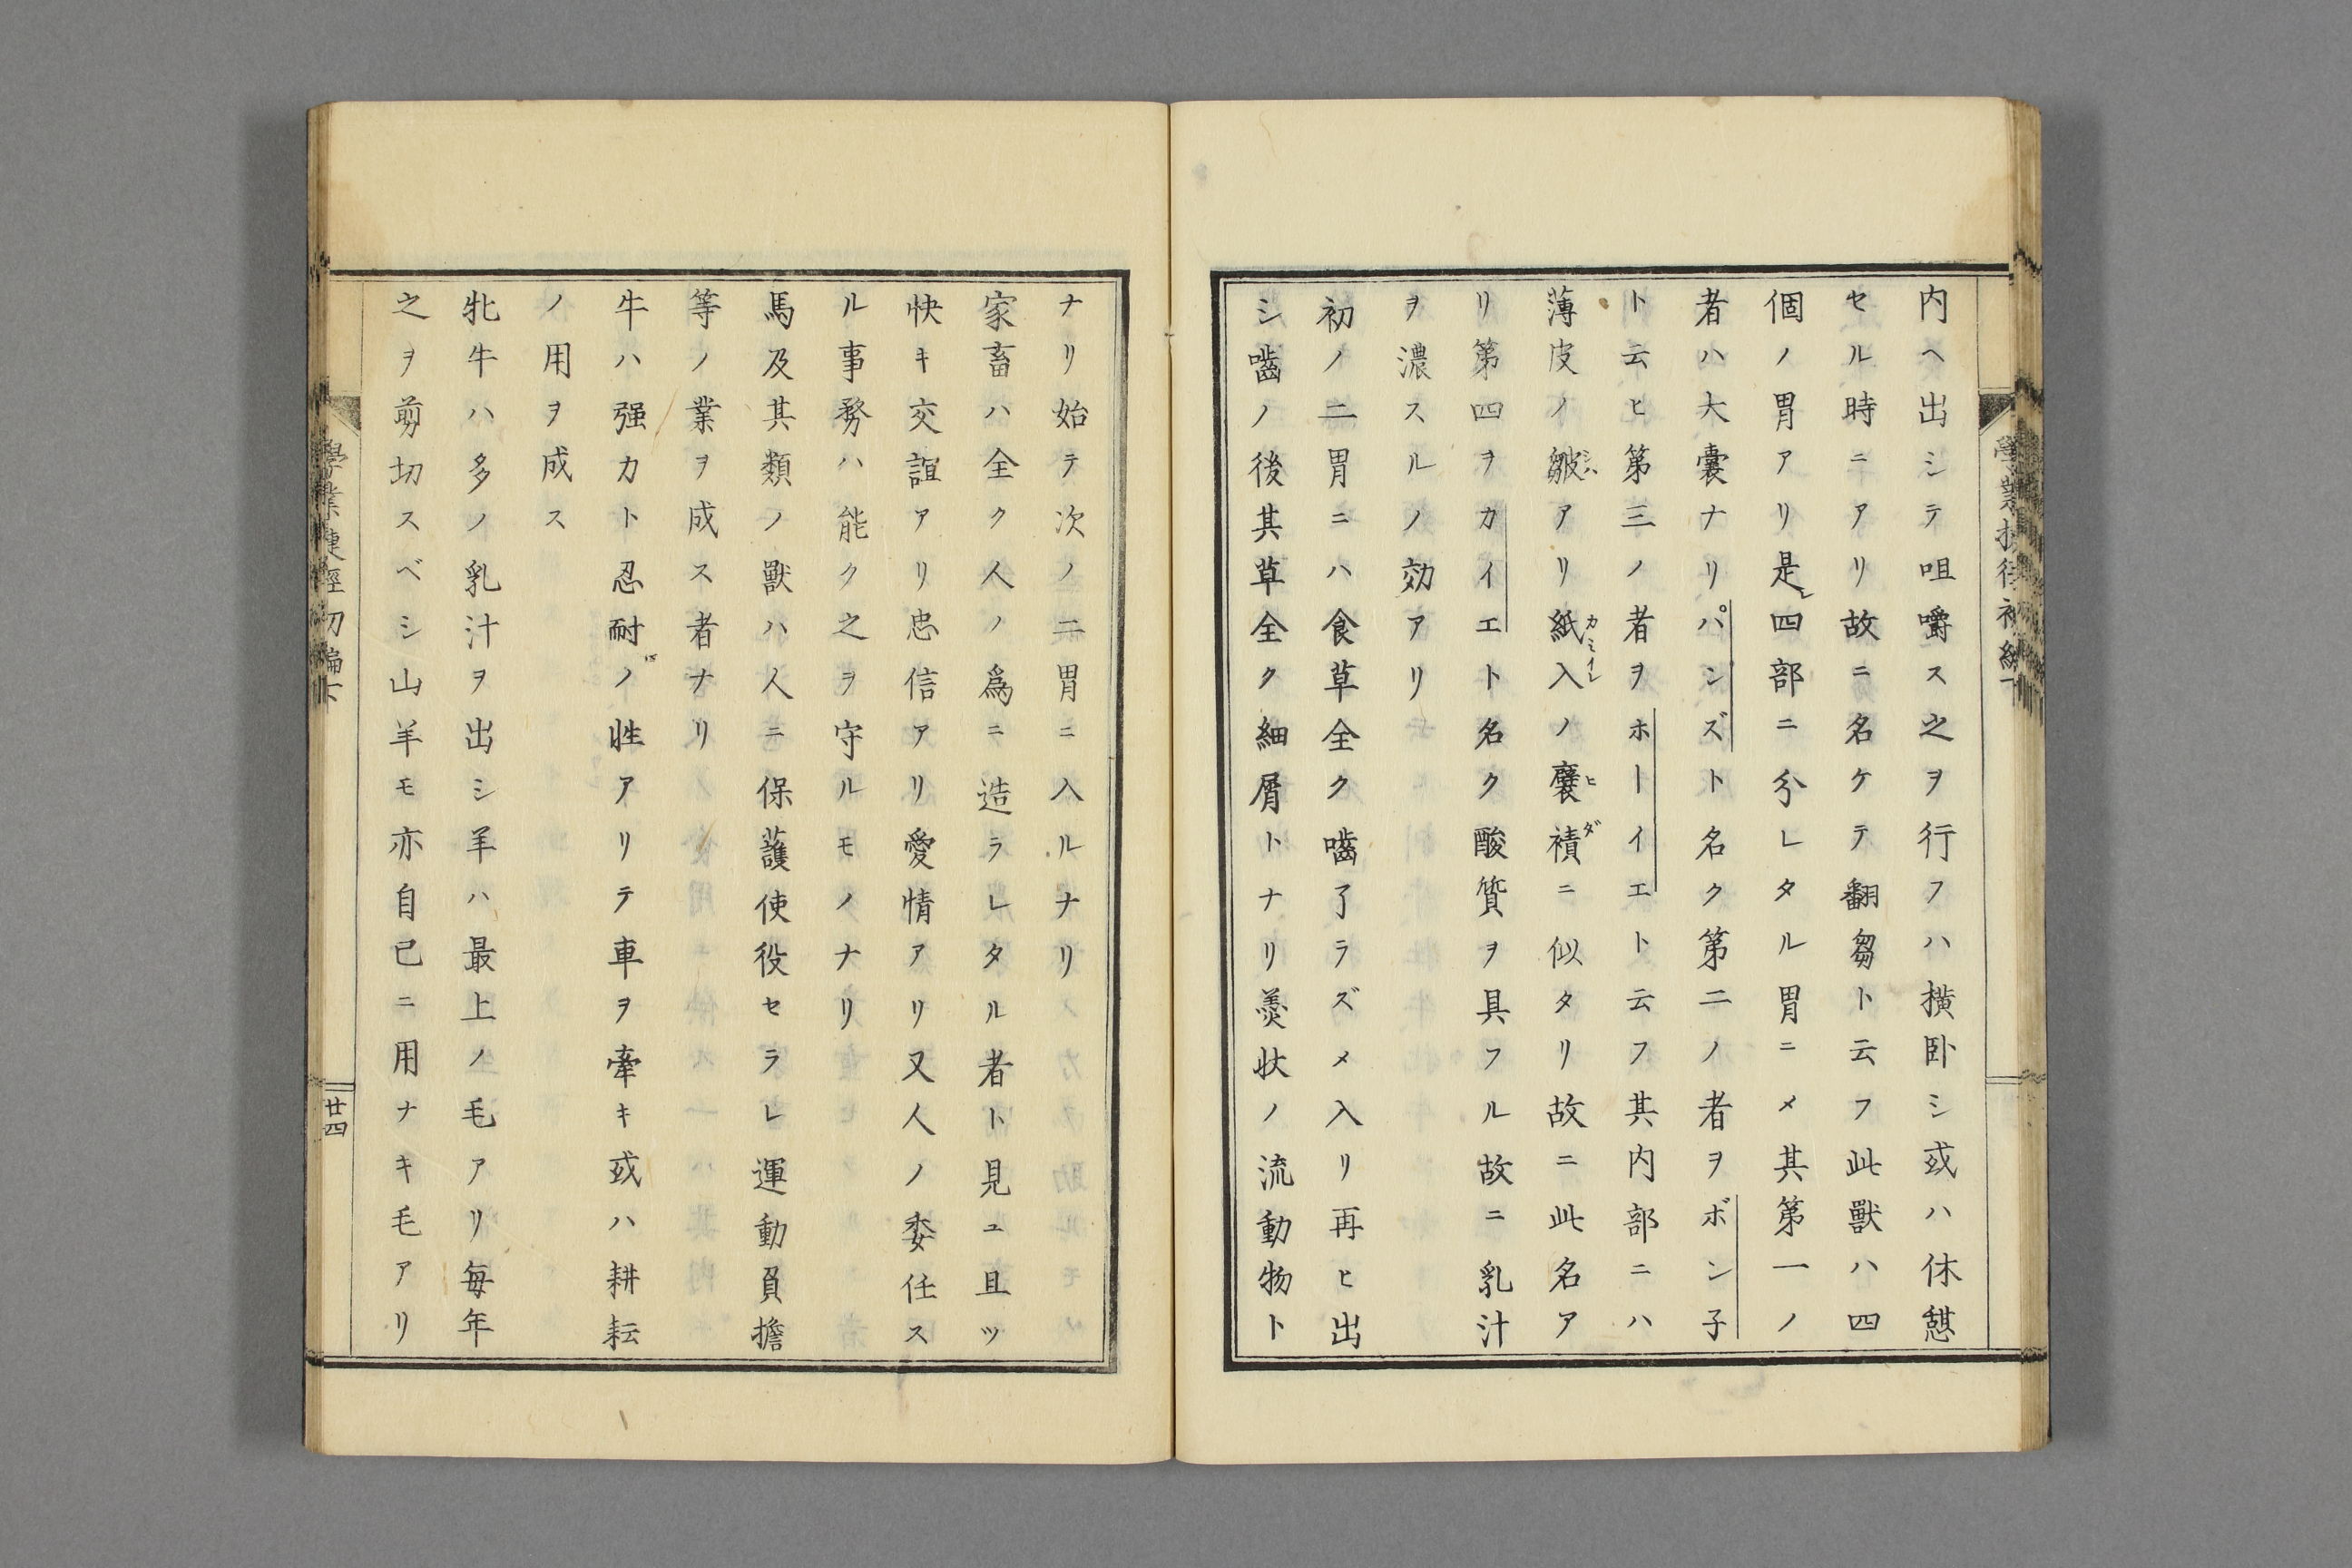 内ヘ出シテ咀嚼ス之ヲ行フハ横卧シ或ハ休憇
セル時ニアリ故ニ名ケテ翻芻ト云フ此獣ハ四
個ノ胃アリ是レ四部ニ分レタル胃ニメ其第一ノ
者ハ大囊ナリパンズト名ク第二ノ者ヲボン子
ト云ヒ第三ノ者ヲホーイエト云フ其内部ニハ
薄皮ノ皺アリ紙入ノ襞襀ニ似タリ故ニ此名ア
リ第四ヲカイエト名ク酸質ヲ具フル故ニ乳汁
ヲ濃スルノ効アリ
初ノ二胃ニハ食草全ク嚙了ラズメ入リ再ヒ出
シ嚙ノ後其草全ク細屑トナリ羹状ノ流動物ト
ナリ始テ次ノ二胃ニ入ルナリ
家畜ハ全ク人ノ爲ニ造ラレタル者ト見ユ且ツ
快キ交誼アリ忠信アリ愛情アリ又人ノ委任ス
ル事務ハ能ク之ヲ守ルモノナリ
馬及其類ノ獸ハ人ニ保護使役セラレ運動負擔
等ノ業ヲ成ス者ナリ
牛ハ强力ト忍耐ノ性アリテ車ヲ牽キ或ハ耕耘
ノ用ヲ成ス
牝牛ハ多ノ乳汁ヲ出シ羊ハ最上ノ毛アリ毎年
之ヲ剪切スベシ山羊モ亦自已ニ用ナキ毛アリ
廿四